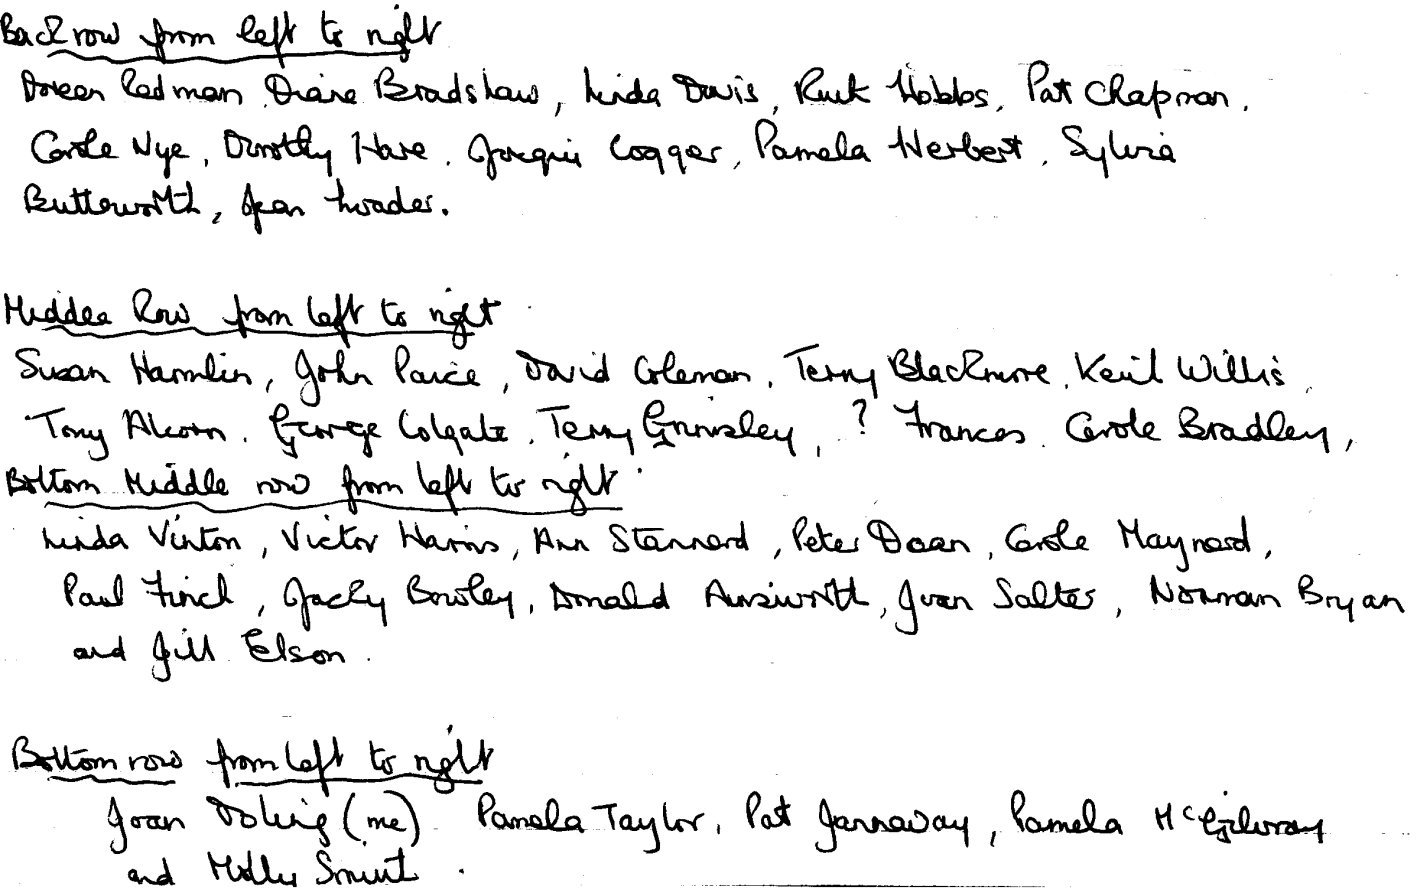 Back row from left to right
Doreen Redman, Diane Bradshaw, Linda Davis, Ruth Hobbs, Pat Chapman.
Carole Nye, Dorothy Hare, Jacqui Cogger, Pamela Herbert, Sylvia
Butterworth, Jean
Middle Row from left to right
Susan Hamlin, John Paice, David Coleman, Terry Blackmore, Keith Willis,
Tony Alcorn, George Colgate, Terry Grinsley, ? Frances. Carole Bradley,
Bottom Middle row from left to right
Linda Vinton, Victor Harris, Ann Stannard, Peter Doan, Carole Maynard,
Paul Finch, Jacky Bowley, Donald Ainsworth, Joan Salter, Norman Bryan
and Jill Elson.
Bottom row from left to right
Joan Doling (me) Pamela Taylor, Pat Jannaway, Pamela McGilvray
and Molly